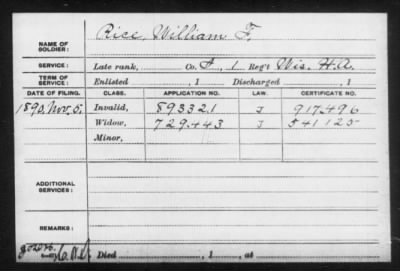 NAME OF SOLDIER: Rice, William F.
SERVICE: Late rank, Co. F, 1 Reg't Wis. H.A.
TERM OF SERVICE: Enlisted , 1 Discharged , 1
DATE OF FILING. CLASS. APPLICATION NO. LAW. CERTIFICATE NO.
1890, Nov. 5. Invalid, 893321 J 917.496
Widow, 729.443 J 541125
Minor,
ADDITIONAL SERVICES:
REMARKS:
Died , 1 , at